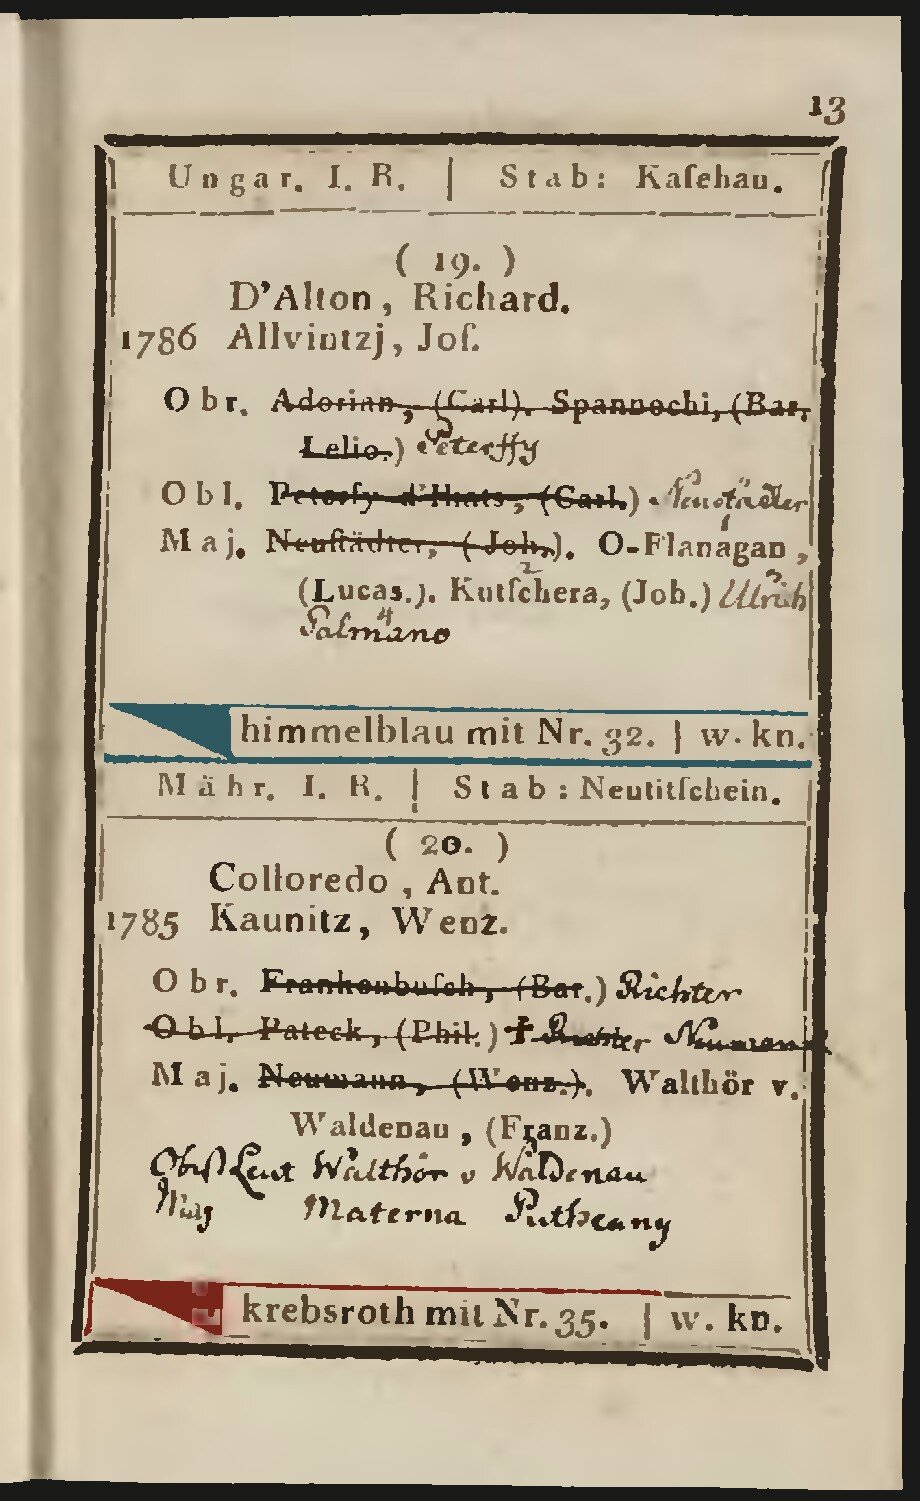 13
Ungar. I. R. | Stab: Kaſchau.
( 19. )
D'Alton, Richard.
1786 Allvintzj, Joſ.
Obr. Adorian, (Carl). Spannochi, (Bar.
Lelio.) Peterffy
Obl. Peterfy d'Hrats, (Carl.) Neustädter
Maj. Neuſtädter, (Joh.). O-Flanagan, 1
(Lucas.). Kutſchera, (Joh.) 2 Ulrich 3
Palmano 4
himmelblau mit Nr. 32. | w. kn.
Mähr. I. R. | Stab: Neutitſchein.
( 20. )
Colloredo, Ant.
1785 Kaunitz, Wenz.
Obr. Frankenbuſch, (Bar.) Richter
Obl. Pateck, (Phil.) † Richter Neumann
Maj. Neumann, (Wenz.). Walthör v.
Waldenau, (Franz.)
Obist Leut Walthör v Waldenau
Maj Materna Putheany
krebsroth mit Nr. 35. | w. kn.